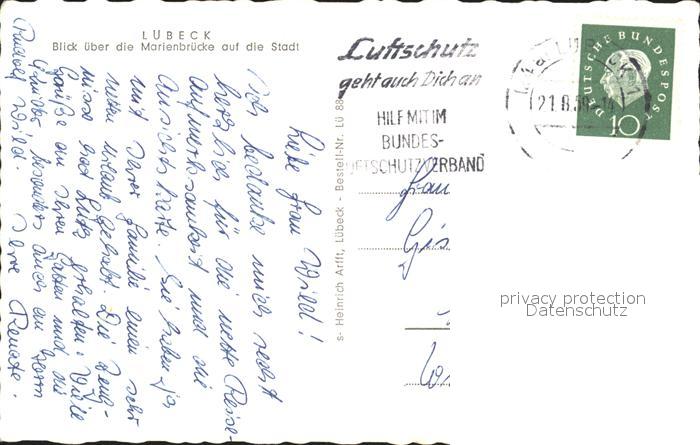 LÜBECK
Blick über die Marienbrücke auf die Stadt
Liebe Frau Wild!
Ich bedanke mich recht
herzlich für die nette Reise-
aufmerksamkeit und die
Ansichtskarte. Sie haben ja
mit Ihrer Familie einen sehr
netten Urlaub gehabt. Die
und Lutz erhalten. Viele
Grüße an Ihren Gatten und die
Kinder, besonders auch an Herrn
Rudolf Wild. Ihre Renate.
s- Heinrich Arfft, Lübeck - Bestell-Nr. Lü 88
Luftschutz
geht auch Dich an
HILF MIT IM
BUNDES-
LUFTSCHUTZVERBAND
LÜBECK 1
21.8.59-14
DEUTSCHE BUNDESPOST
10
Frau
Gis
privacy protection
Datenschutz